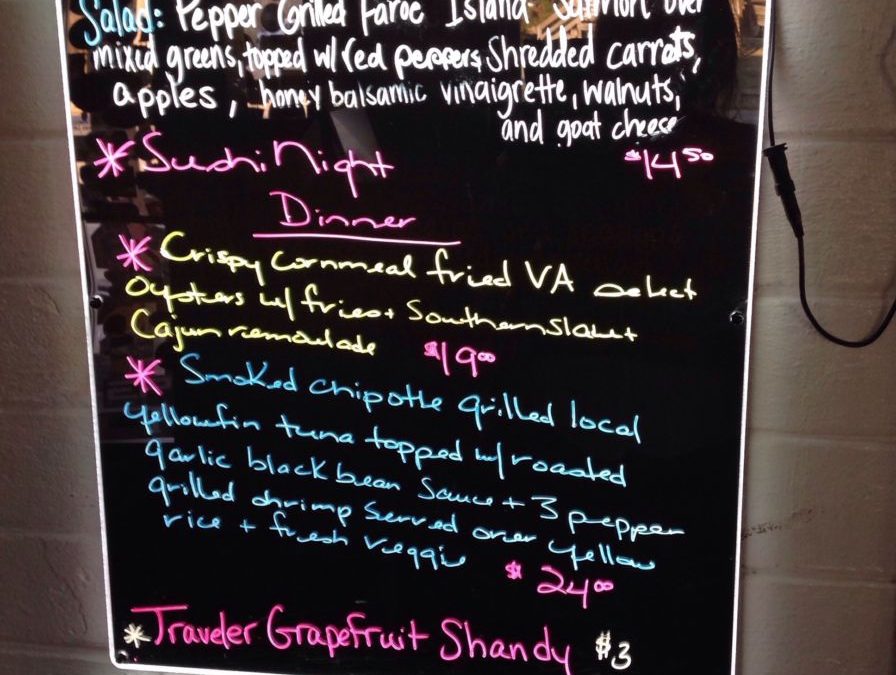 Salad: Pepper Grilled Faroe Island Salmon over
mixed greens, topped w/red peppers, Shredded carrots,
apples, honey balsamic vinaigrette, walnuts,
and goat cheese
* Sushi Night $14.50
Dinner
* Crispy Cornmeal fried VA select
Oysters w/ fries + Southern slaw +
Cajun remoulade $19.00
* Smoked chipotle grilled local
yellowfin tuna topped w/ roasted
garlic black bean sauce + 3 pepper
grilled shrimp served over yellow
rice + fresh veggie
$24.00
* Traveler Grapefruit Shandy $3